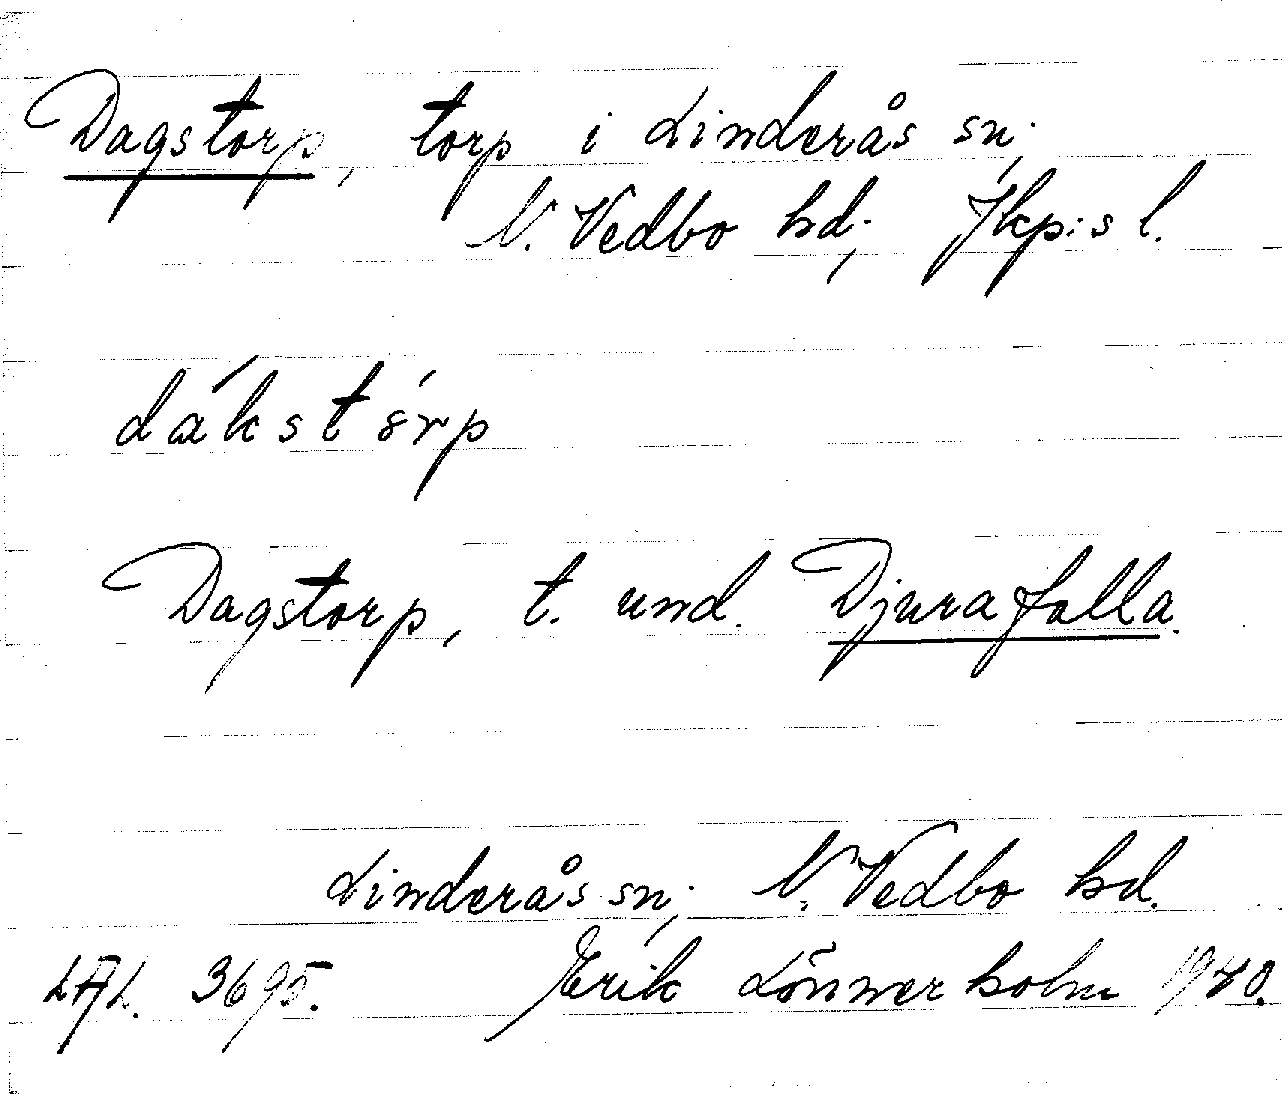 Dagstorp, torp i Linderås sn;
N. Vedbo hd; Jkp:s l.
dákstórp
Dagstorp, t. und. Djurafalla.
Linderås sn; N. Vedbo hd.
3695. Erik Lönnerholm 1940.